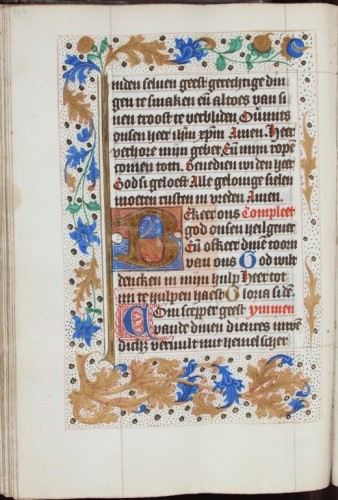 inden seluen geest gerechtige din
gen te smaken eñ altoes van si
nen troost te verbliden Ouermits
onsen heer ihm xpm Amen. Heer
verhore mijn gebet Eñ mijn rope
comen tot ti. Benedien wi den heer
God si geloeft Alle gelouige sielen
moeten rusten in vreden Amen.
Bekeer ons Compleet
god onsen heilgeuer
Eñ ofkeer dinē toorn
van ons God wilt
dencken in mijn hulp Heer tot
mi te hulpen haest Gloria
Com scepper geest ymmen
vande dinen dienres
veruult mit hemelscher